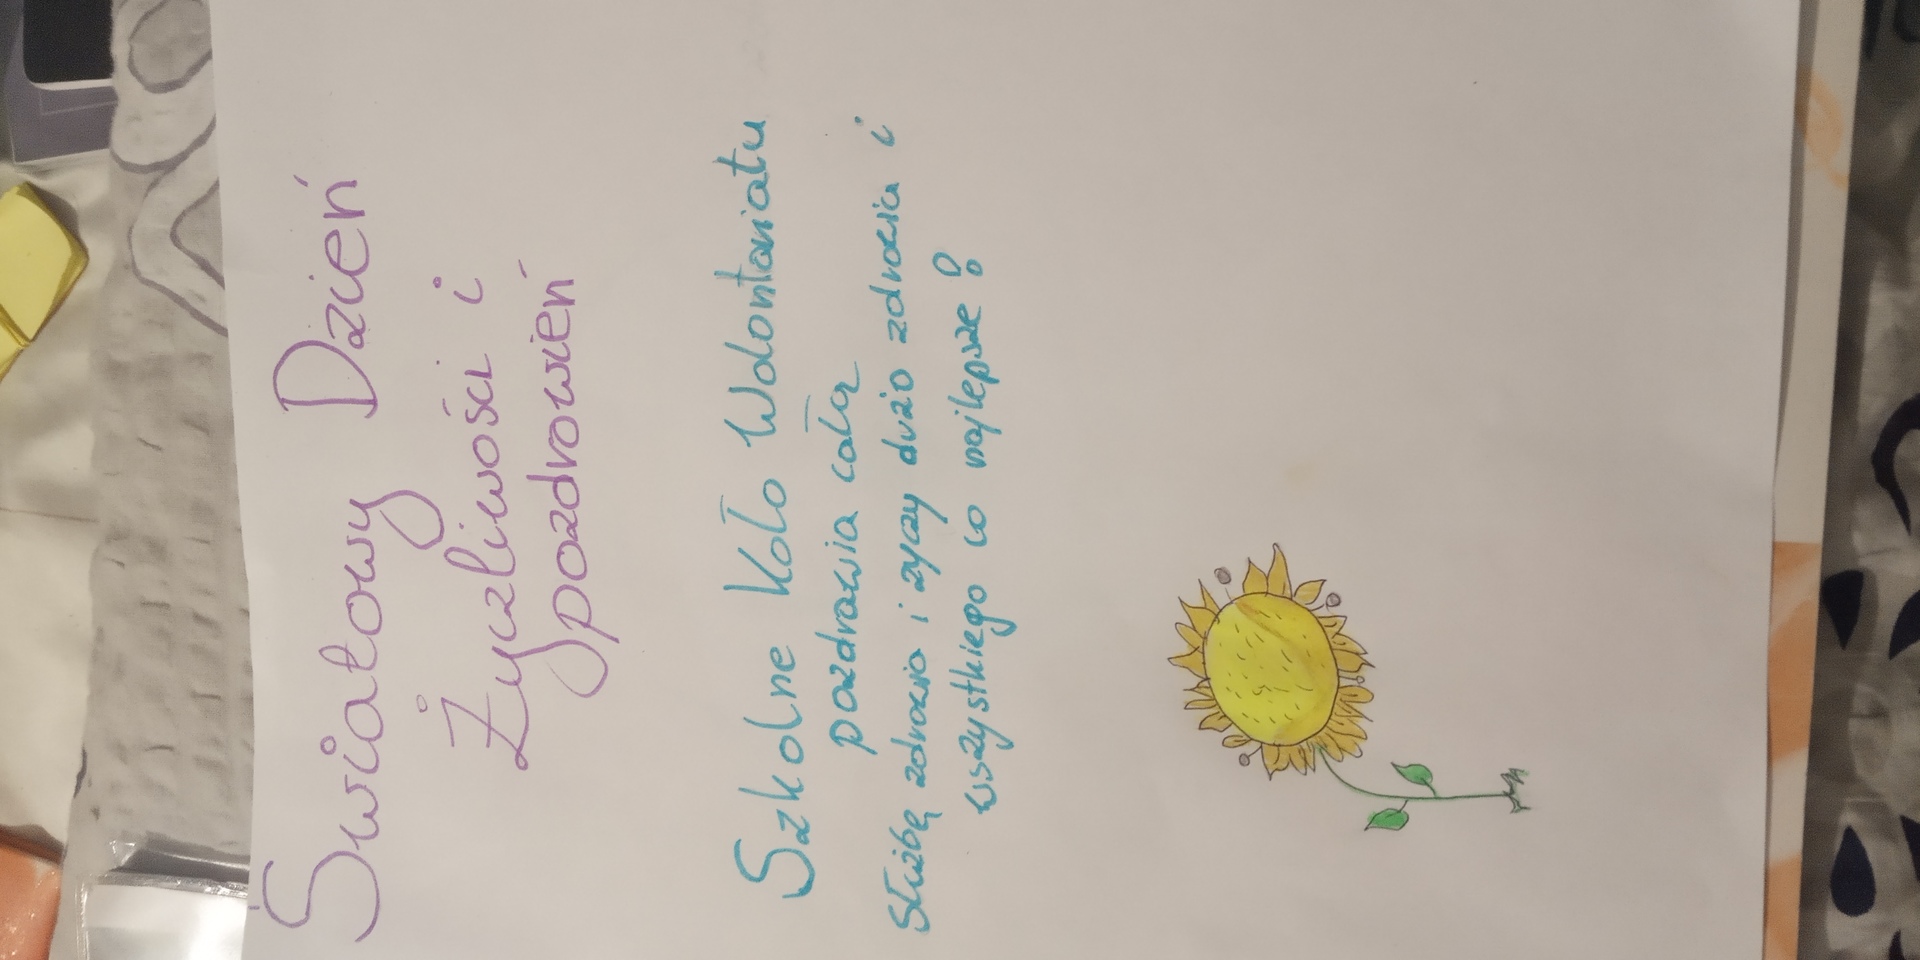 Światowy Dzień
Życzliwości i
pozdrowień
Szkolne Koło Wolontariatu
pozdrawia całą
Służbę zdrowia i życzy dużo zdrowia i
wszystkiego co najlepsze!